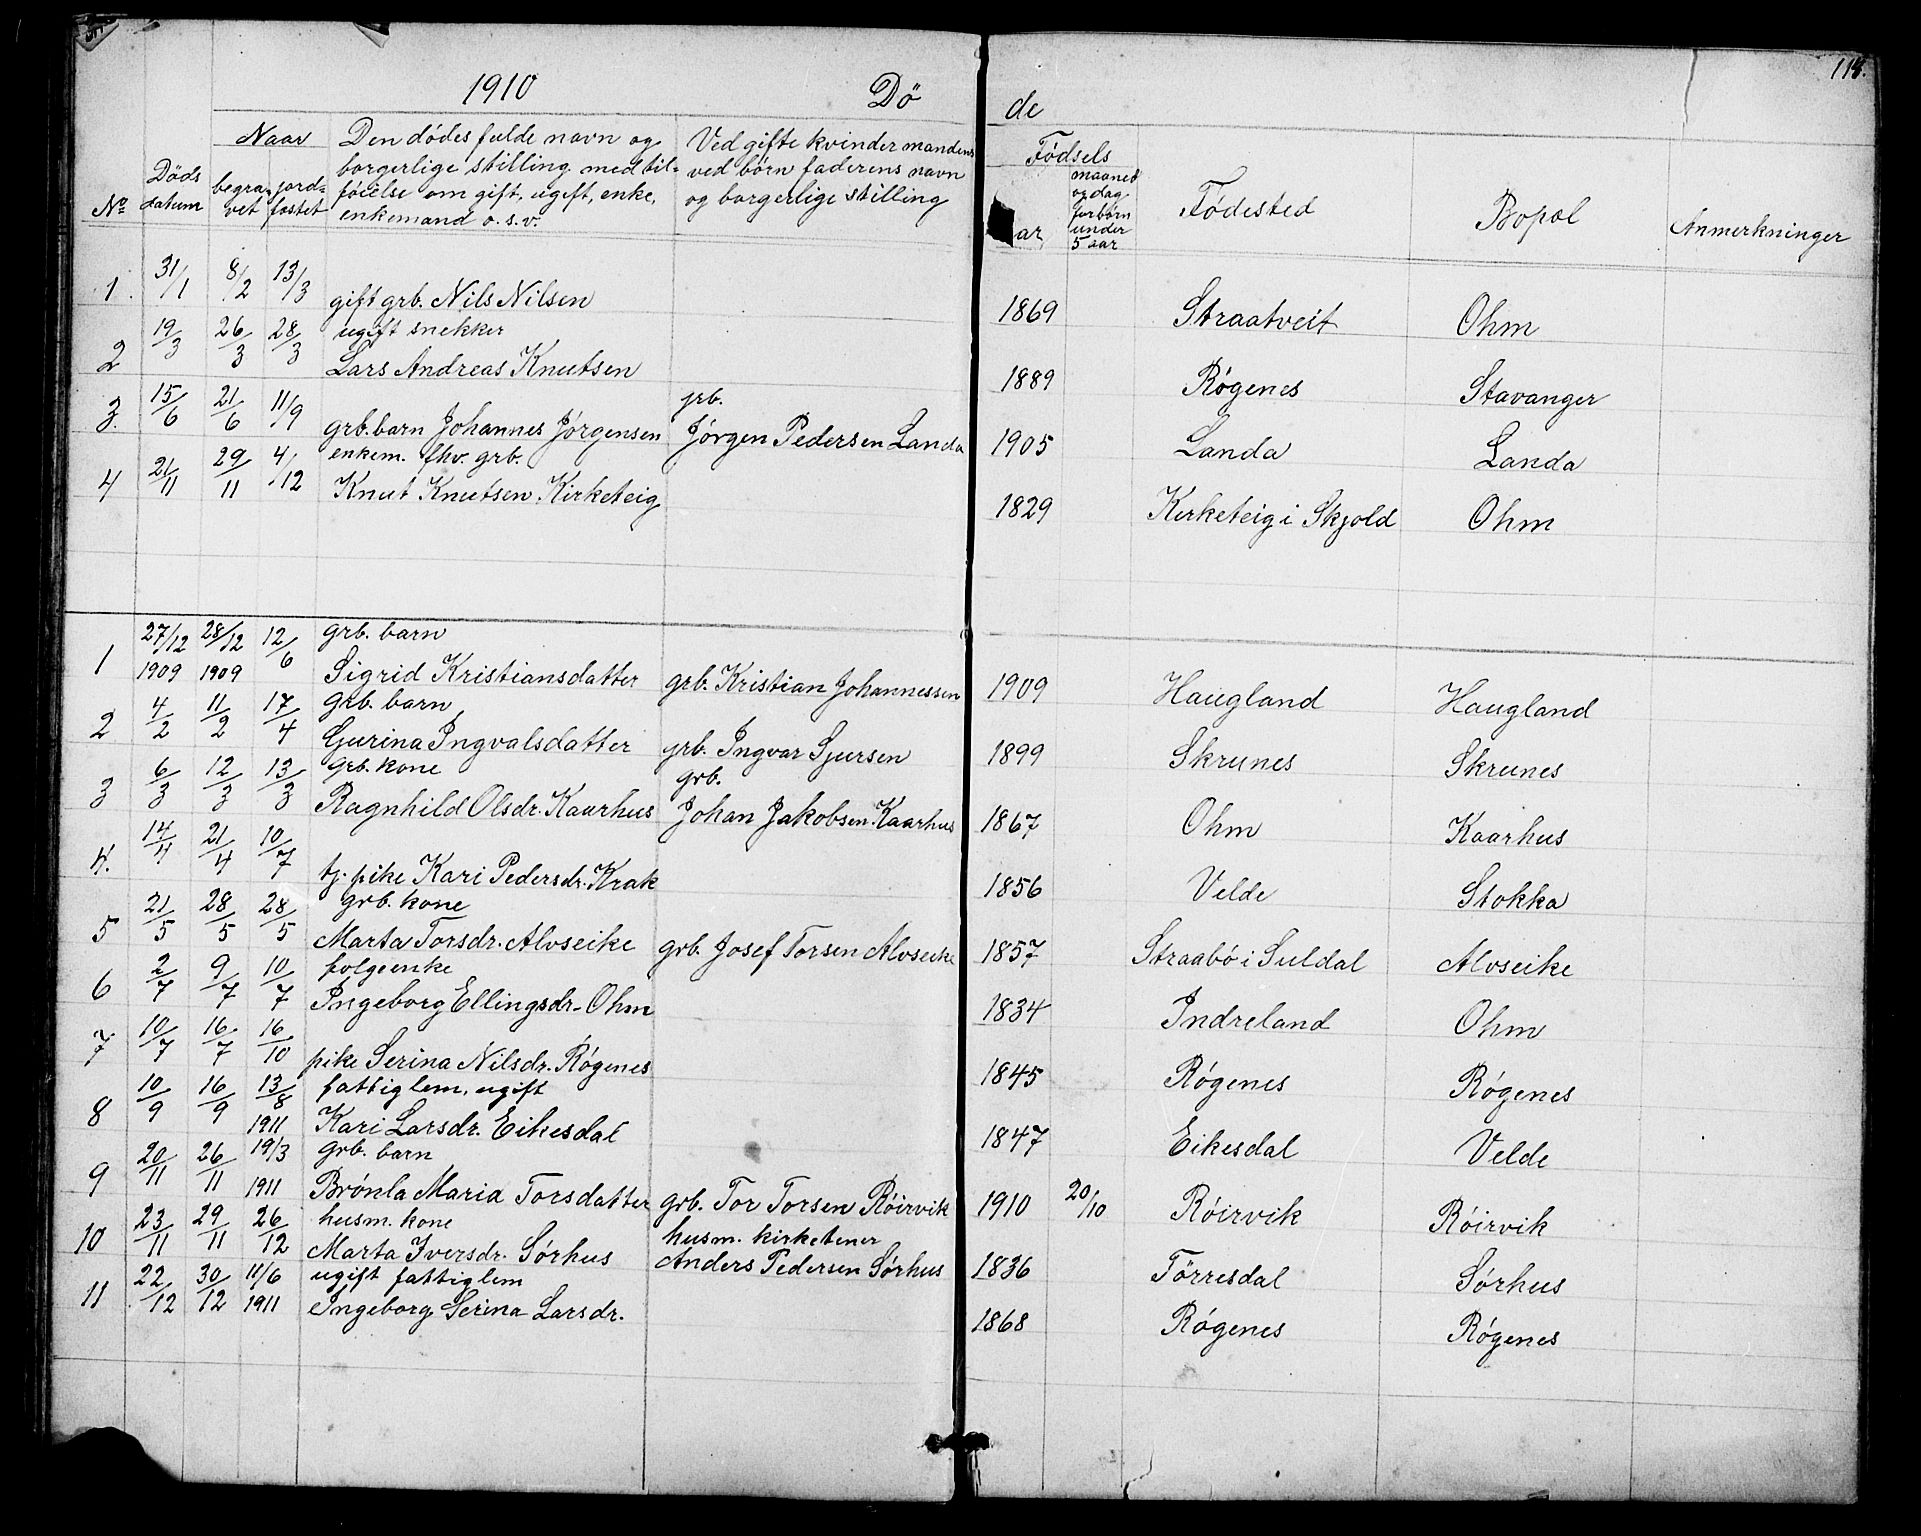 1910 Dö de 118.
Naar
Den dødes fulde navn og borgerlige stilling med tilføielse om gift, ugift, enke, enkemand o. s. v.
Ved gifte kvinder mandens ved børn faderens navn og borgerlige stilling
Fødsels
№ Døds datum begravet jordfæstet
ar maaned og dag for børn under 5 aar
Fødested Bopæl Anmerkninger
1 31/1 8/2 13/3 gift grb. Nils Nilsen 1869 Straatveit Ohm
ugift snekker
2 19/3 26/3 28/3 Lars Andreas Knutsen 1889 Røgenes Stavanger
grb.
3 15/6 21/6 11/9 grb. barn Johannes Jørgensen Jørgen Pedersen Landa 1905 Landa Landa
enkem. fhv. grb.
4 21/11 29/11 4/12 Knut Knutsen Kirketeig 1829 Kirketeig i Skjold Ohm
27/12 28/12 12/6 grb. barn
1 1909 1909 Sigrid Kristiansdatter grb. Kristian Johannessen 1909 Haugland Haugland
grb. barn
2 4/2 11/2 17/4 Gjurina Ingvalsdatter grb. Ingvar Sjursen 1899 Skrunes Skrunes
grb. kone grb.
3 6/3 12/3 13/3 Ragnhild Olsdr. Kaarhus Johan Jakobsen Kaarhus 1867 Ohm Kaarhus
4. 14/4 21/4 10/7 tj. pike Kari Pedersdr. Krak 1856 Velde Stokka
grb. kone
5 21/5 28/5 28/5 Marta Torsdr. Alvseike grb. Josef Torsen Alvseike 1857 Straabø i Suldal Alvseike
folgeenke
6 2/7 9/7 10/7 Ingeborg Ellingsdr. Ohm 1834 Indreland Ohm
7 10/7 16/7 16/10 pike Serina Nilsdr. Røgenes 1845 Røgenes Røgenes
10/9 16/9 13/8 fattiglem, ugift
8 1911 Kari Larsdr. Eikesdal 1847 Eikesdal Velde
20/11 26/11 19/3 grb. barn
9 1911 Brønla Maria Torsdatter grb. Tor Torsen Røirvik 1910 20/10 Røirvik Røirvik
husm. kone husm. kirketener
10 23/11 29/11 26/12 Marta Iversdr. Sørhus Anders Pedersen Sørhus 1836 Törresdal Sørhus
22/12 30/12 11/6 ugift fattiglem
11 1911 Ingeborg Serina Larsdr. 1868 Røgenes Røgenes